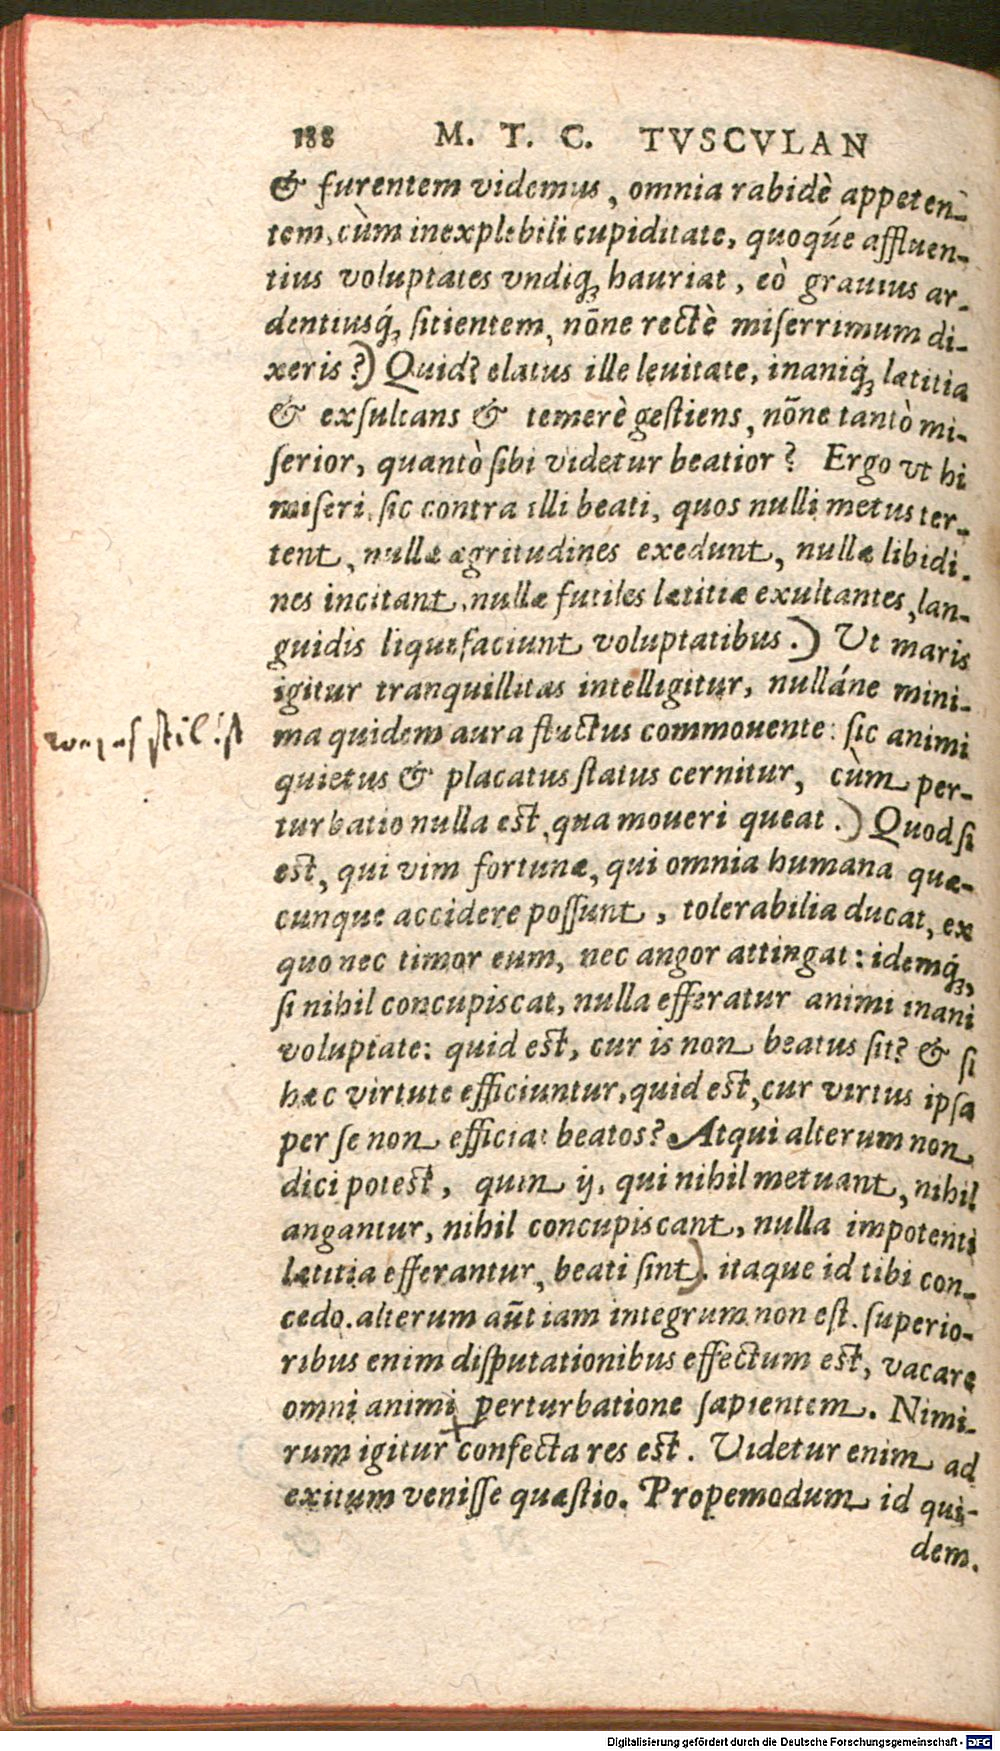 188 M. T. C. TVSCVLAN
& furentem videmus, omnia rabidè appeten-
tem, cùm inexplebili cupiditate, quoq́ue affluen-
tius voluptates vndiq; hauriat, eò grauius ar-
dentiusq́; sitientem, nōne rectè miserrimum di-
xeris?) Quid? elatus ille leuitate, inaniq́; lætitia
& exsultans & temerè gestiens, nōne tantò mi-
serior, quantò sibi videtur beatior? Ergo vt hi
miseri, sic contra illi beati, quos nulli metus ter-
rent, nullæ ægritudines exedunt, nullæ libidi-
nes incitant, nullæ futiles lætitiæ exultantes, lan-
guidis liquefaciunt voluptatibus.) Ut maris
igitur tranquillitas intelligitur, nulláne mini-
ma quidem aura fluctus commouente: sic animi
quietus & placatus status cernitur, cùm per-
turbatio nulla est, qua moueri queat.) Quod si
est, qui vim fortunæ, qui omnia humana quæ-
cunque accidere possunt, tolerabilia ducat, ex
quo nec timor eum, nec angor attingat: idemq́;
si nihil concupiscat, nulla efferatur animi inani
voluptate: quid est, cur is non beatus sit? & si
hæc virtute efficiuntur, quid est, cur virtus ipsa
per se non efficiat beatos? Atqui alterum non
dici potest, quin ij, qui nihil metuant, nihil
angantur, nihil concupiscant, nulla impotenti
lætitia efferantur, beati sint). itaque id tibi con-
cedo. alterum aūt iam integrum non est. superio-
ribus enim disputationibus effectum est, vacare
omni animi perturbatione sapientem. Nimi-
rum igitur confecta res est. Videtur enim ad
exitum venisse quæstio. Propemodum id qui-
dem.
Digitalisierung gefördert durch die Deutsche Forschungsgemeinschaft - DFG